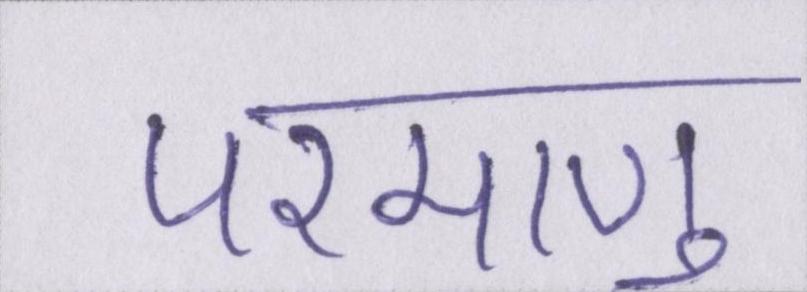 परमाणु